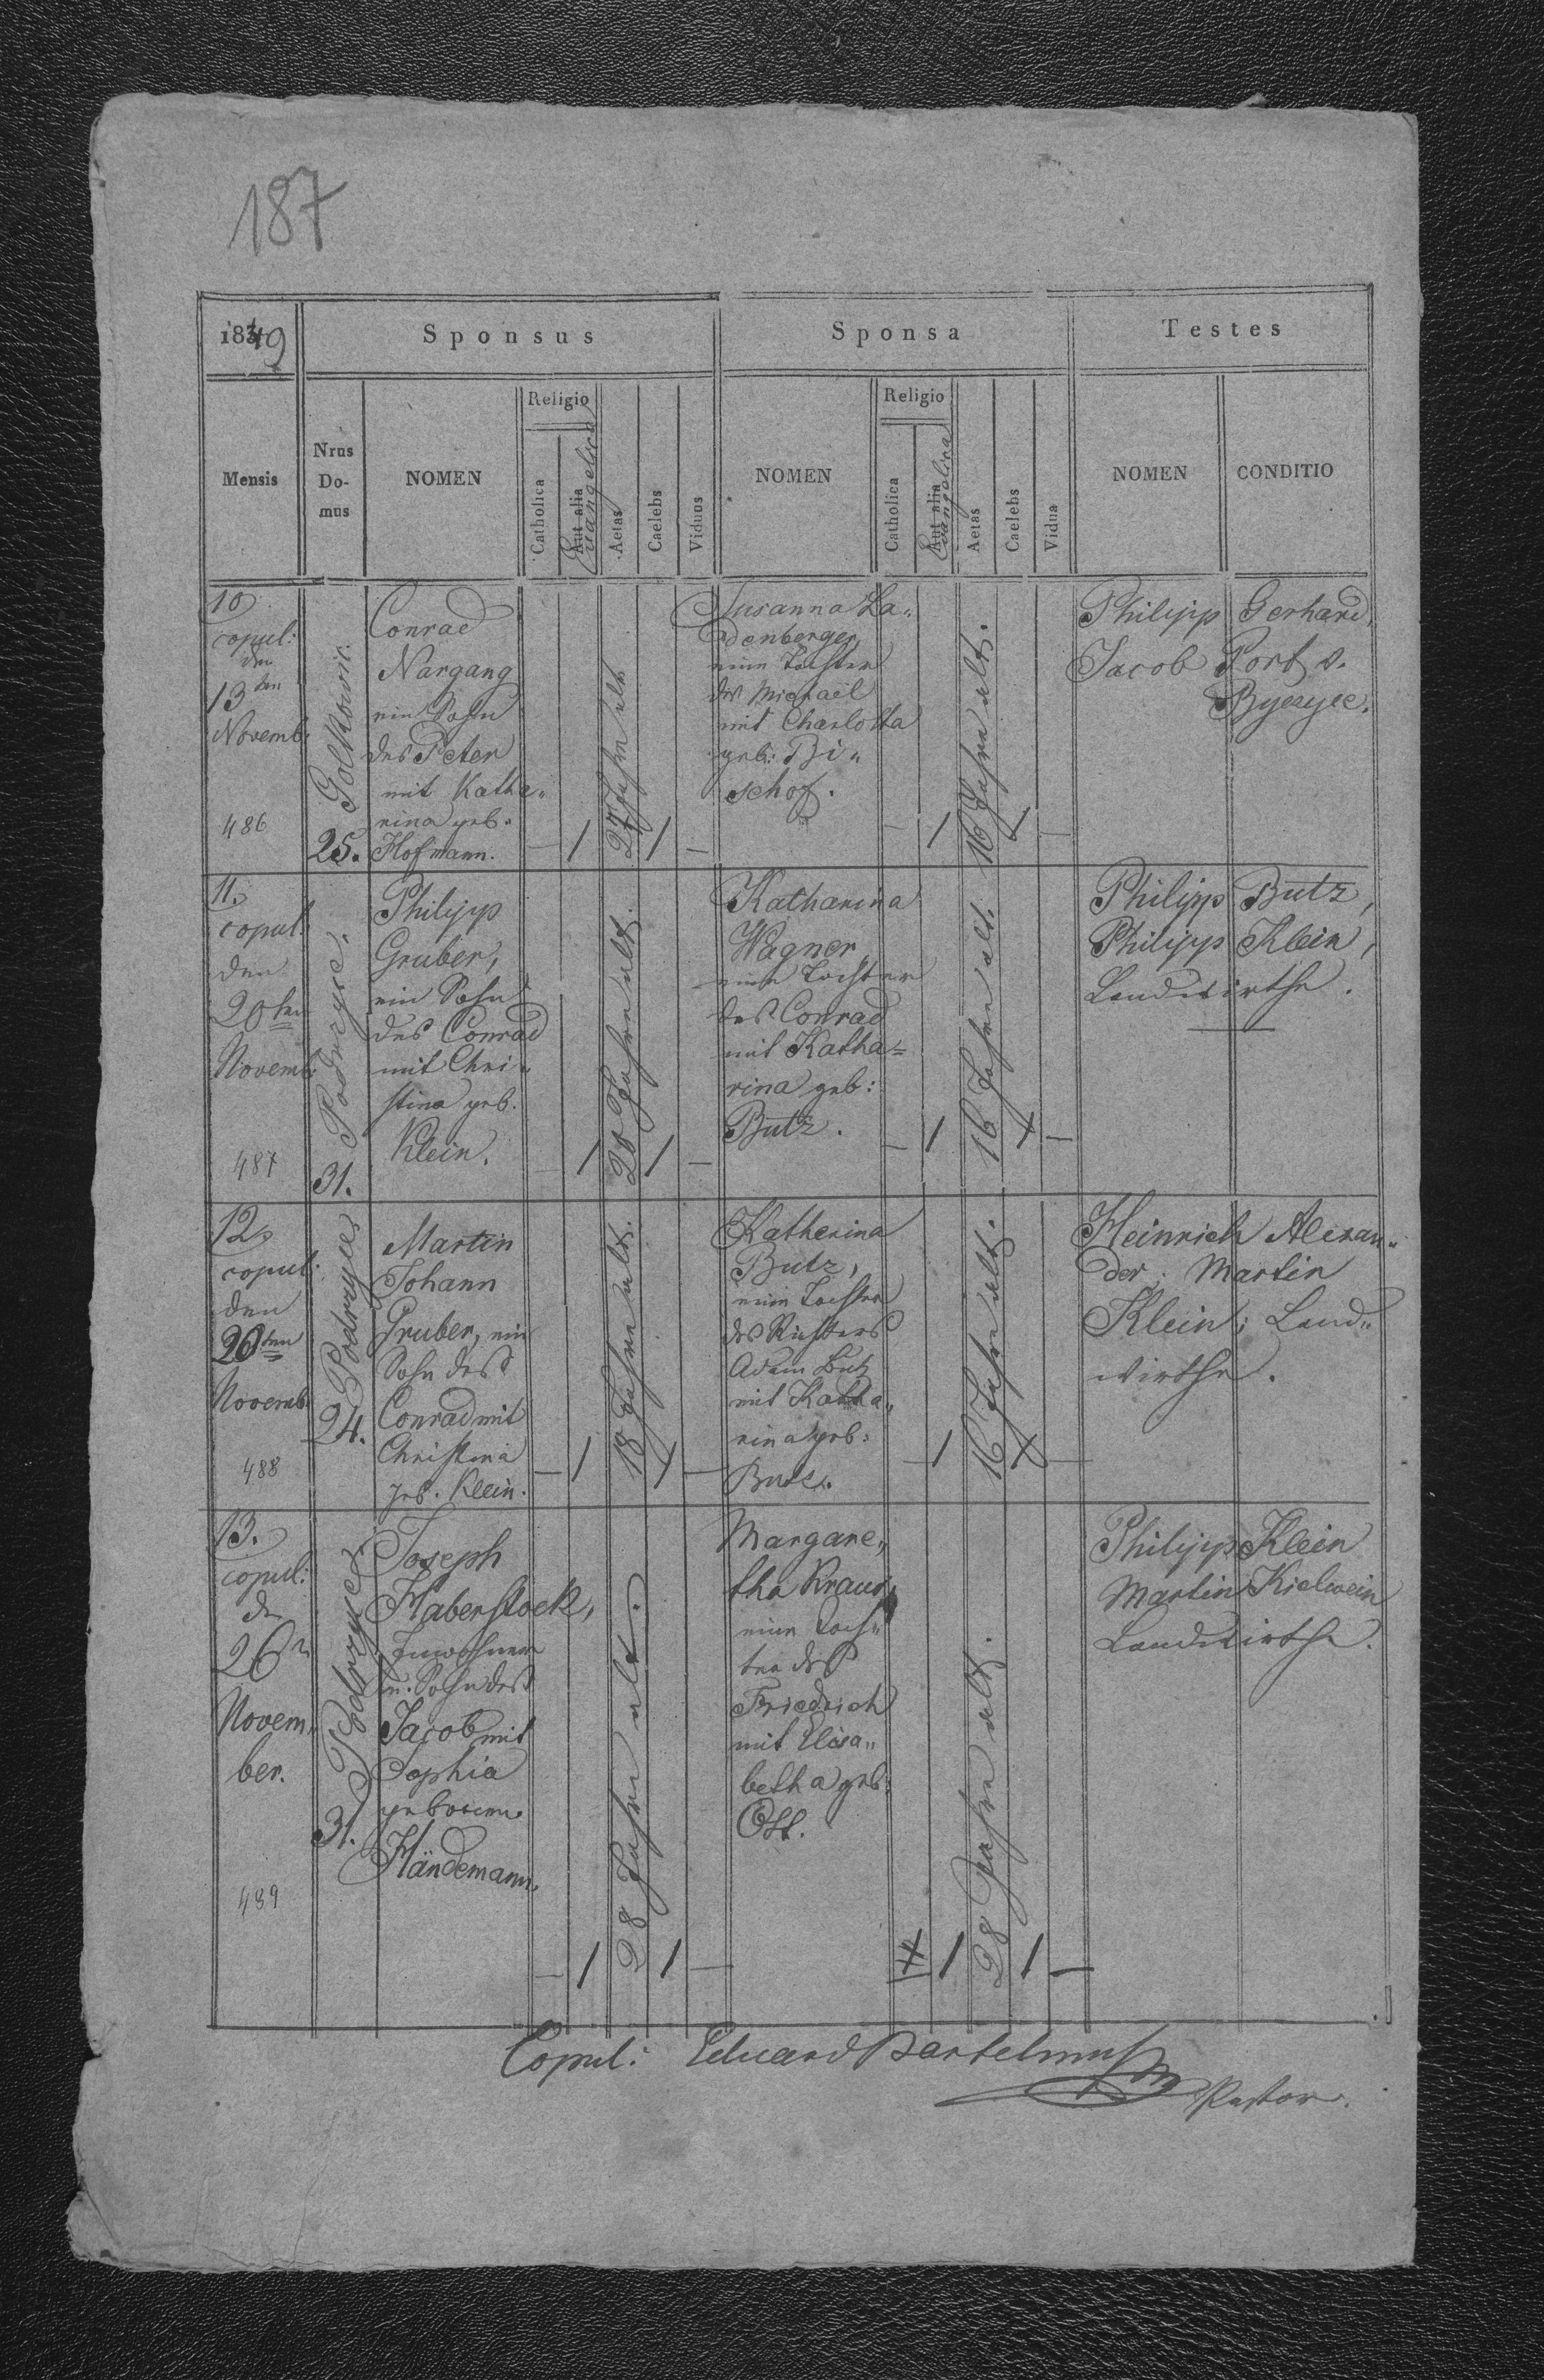 187
1849
Sponsus
Sponsa
Testes
Mensis
Nrus Do-mus
NOMEN
Religio
Catholica
Aut alia
Evangelica
Aetas
Caelebs
Viduus
NOMEN
Religio
Catholica
Aut alia
Evangelica
Aetas
Caelebs
Vidua
NOMEN
CONDITIO
10
copul:
den
13ten
Novemb.
486
25.
Conrad
Nargang
ein Sohn
des Peter
mit Katha„
rina geb.
Hofmann.
27 Jahre alt
Susanna La„
denberger,
eine Tochter
des Michael
mit Charlotta
geb: Bi„
schof.
16 Jahre alt.
Philipp Gerhard,
Jacob Port
11.
copul:
den
20ten
Novemb.
487
31.
Philipp
Gruber,
ein Sohn
des Conrad
mit Chri„
stina geb.
Klein.
20 Jahre alt.
Katharina
Wagner,
eine Tochter
des Conrad
mit Katha=
rina geb:
Butz.
16 Jahre alt.
Philipp Butz,
Philipp Klein,
Landwirthe.
12.
copul:
den
20ten
Novemb.
488
24.
Martin
Johann
Gruber, ein
Sohn des
Conrad mit
Christina
geb. Klein.
18 Jahre alt.
Katherina
Butz,
eine Tochter
des Richters
Adam Butz
mit Katha„
rina geb:
16 Jahre alt.
Heinrich Alexan„
der. Martin
Klein; Land„
wirthe.
13.
copul:
den
26n
Novem„
ber.
489
31.
Joseph
Haberstock,
Inwohner
u. Sohn des
Jacob mit
Sophia
geborene
Händemann.
28 Jahre alt.
Margare„
tha Kraus,
eine Toch„
ter des
Friedrich
mit Elisa„
betha geb:
Ott.
28 Jahre alt.
Philipp Klein
Martin Kielwein
Landwirthe.
Copul: Eduard Bartelmuss
Pastor.